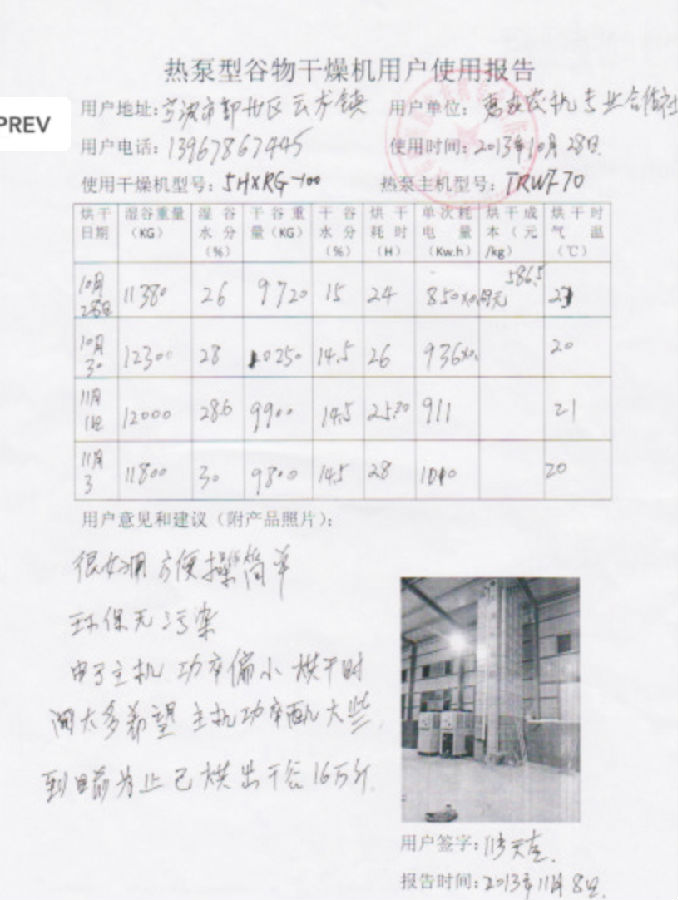 热泵型谷物干燥机用户使用报告
PREV
用户地址:宁波市鄞州区云龙镇 用户单位:惠农农机专业合作社
用户电话:13967867445 使用时间:2013年10月28日
使用干燥机型号:5HXRG-100 热泵主机型号:TRWF70
烘干日期 湿谷重量(KG) 湿谷水分(%) 干谷重量(KG) 干谷水分(%) 烘干耗时(H) 单次耗电量(Kw.h) 烘干成本(元/kg) 烘干时气温(℃)
10月28日 11380 26 9720 15 24 850 586.5元
10月30 12300 28 10250 14.5 26 936 20
11月1日 12000 28.6 9900 14.5 25.30 911 21
11月3 11800 30 9800 14.5 28 20
用户意见和建议(附产品照片):
很好用 方便操作简单
环保无污染
由于主机功率偏小 烘干时
间太多希望主机功率配大些
到目前为止已烘出干谷16万斤
用户签字:
报告时间:2013年11月8日